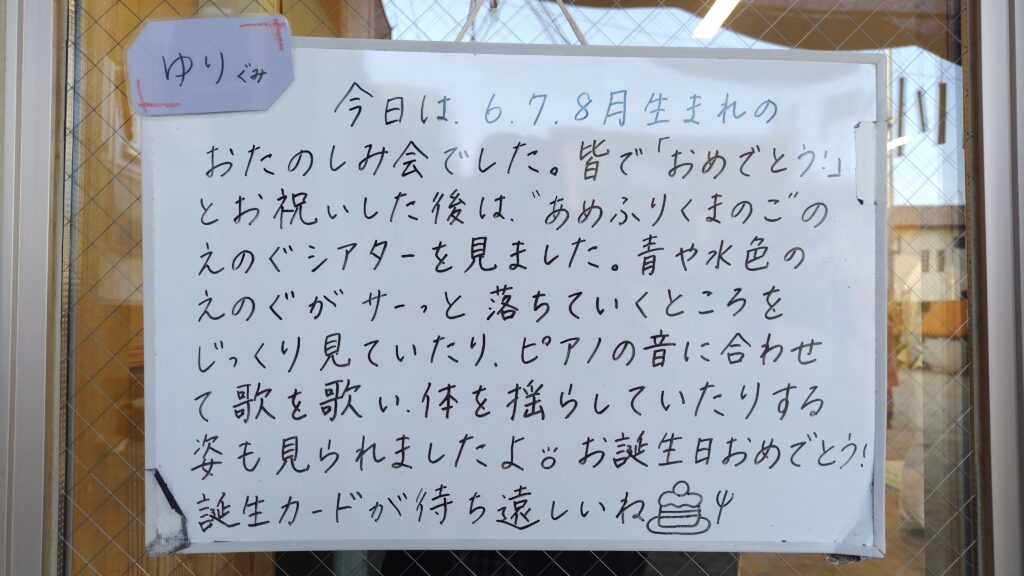 ゆりぐみ
今日は、6.7.8月生まれの
おたのしみ会でした。皆で「おめでとう!」
とお祝いした後は、"あめふりくまのこ"の
えのぐシアターを見ました。青や水色の
えのぐがサーっと落ちていくところを
じっくり見ていたり、ピアノの音に合わせ
て歌を歌い、体を揺らしていたりする
姿も見られましたよ。お誕生日おめでとう!
誕生カードが待ち遠しいね